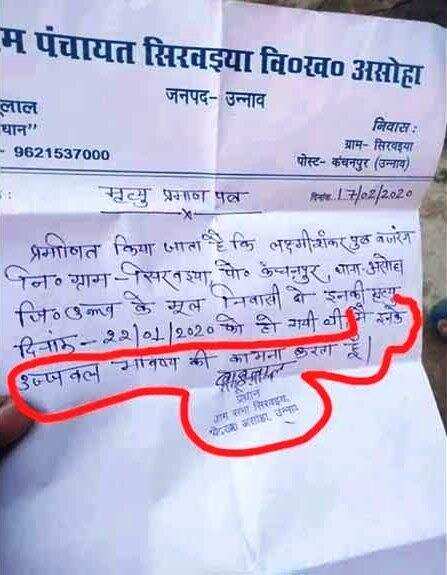 म पंचायत सिरवइया वि०ख० असोहा
जनपद- उन्नाव
लाल
धान"
- 9621537000
निवास :
ग्राम- सिरवइया
पोस्ट- कंचनपुर (उन्नाव)
मृत्यु प्रमाण पत्र
दिनांक 17/02/2020
प्रमाणित किया जाता है कि लक्ष्मीशंकर पुत्र बजरंग
नि० ग्राम - सिरवइया, पो० कंचनपुर, थाना-असोहा
जि० उन्नाव के मूल निवासी थे इनकी मृत्यु
दिनांक - 22/01/2020 को हो गयी थी। मैं इनके
उज्जवल भविष्य की कामना करता हूँ।
प्रधान
ग्राम सभा सिरवइया
असोहा, उन्नाव